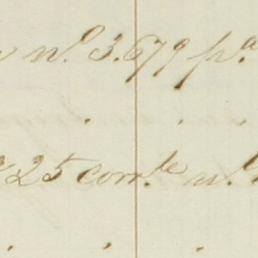 nº 3.679 pª
25 comᵗᵉ nº